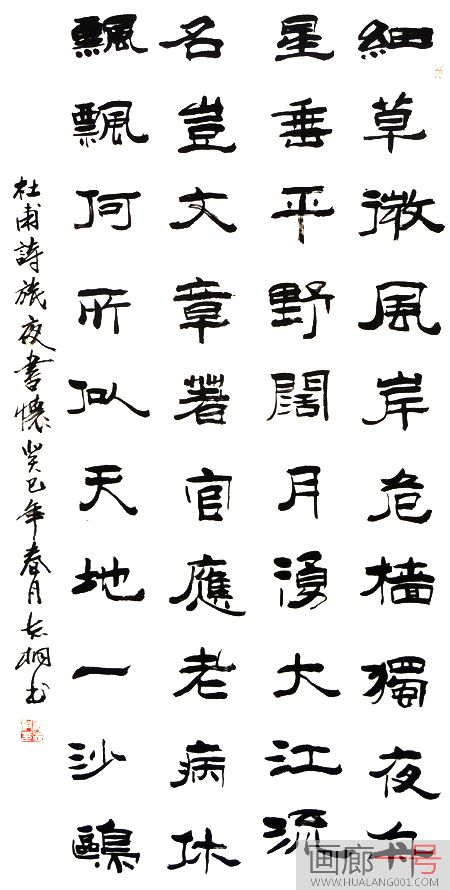 細草微風岸危檣獨夜舟
星垂平野闊月湧大江流
名豈文章著官應老病休
飄飄何所似天地一沙鷗
杜甫詩旅夜書懷癸巳年春月志桐书
画廊一号
WWW.HUALANG001.COM